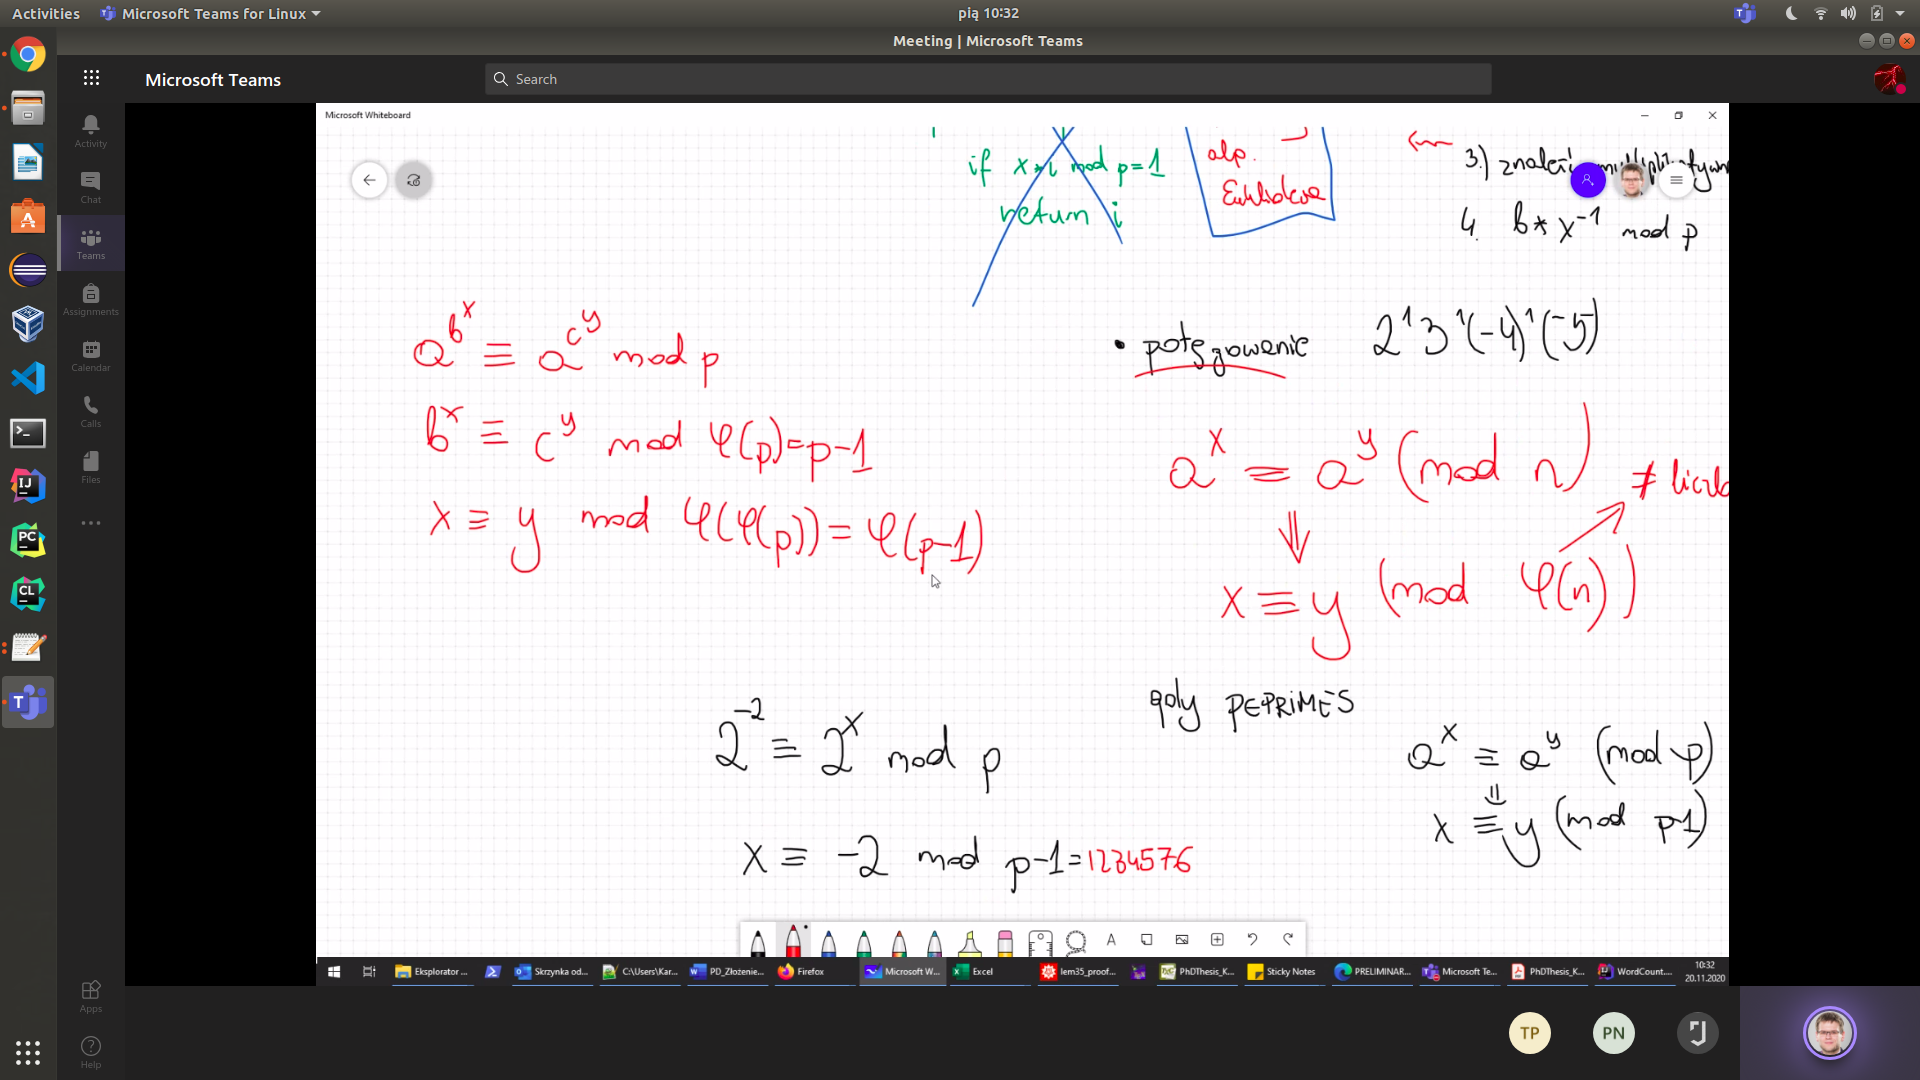 Activities
Microsoft Teams for Linux
pią 10:32
Meeting | Microsoft Teams
Microsoft Teams
Search
Activity
Chat
Teams
Assignments
Calendar
Calls
Files
Apps
Help
Microsoft Whiteboard
if x*i mod p=1
return i
alg.
Euklidesa
3.) znaleźć
4. b * x⁻¹ mod p
a^(b^x) ≡ a^(c^y) mod p
b^x ≡ c^y mod φ(p)=p-1
x ≡ y mod φ(φ(p)) = φ(p-1)
• potęgowanie
2¹3¹(-4)¹(-5)
a^x ≡ a^y (mod n)
≠ liczb
⇓
x ≡ y (mod φ(n))
2⁻² ≡ 2^x mod p
x ≡ -2 mod p-1=1234576
a^x ≡ a^y (mod p)
⇓
x ≡ y (mod p-1)
A
Eksplorator ...
Skrzynka od...
C:\Users\Kar...
PD_Złożenie...
Firefox
Microsoft W...
Excel
lem35_proof...
PhDThesis_K...
Sticky Notes
PRELIMINAR...
Microsoft Te...
PhDThesis_K...
WordCount....
10:32
20.11.2020
TP
PN